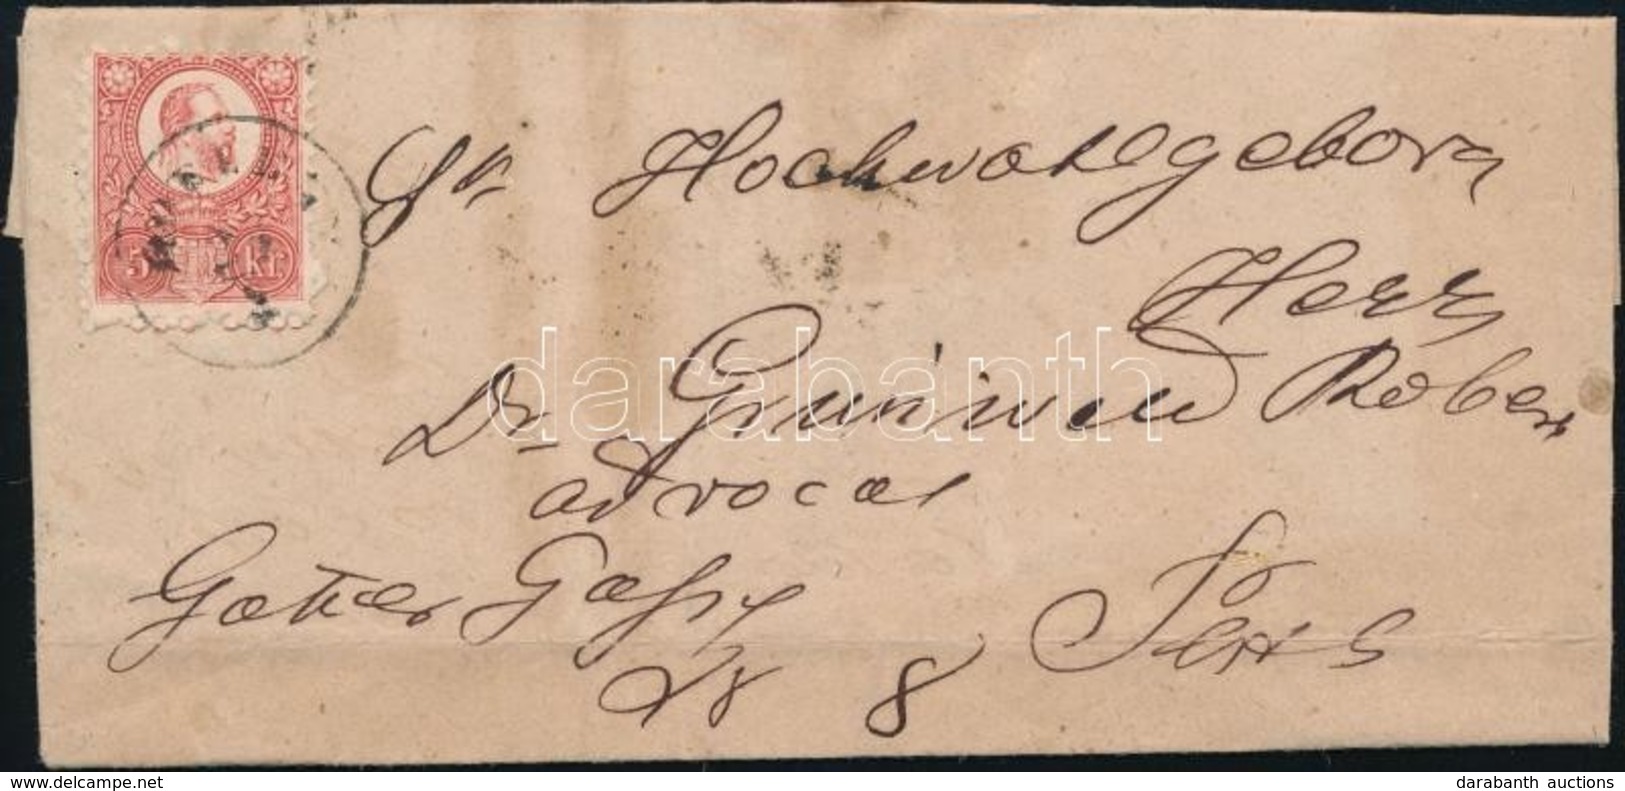 5 kr.
Sr Hochwohlgeborn
Herrn
Dr Grünwald Robert
advocat
Gasse
Nr 8 Pest
darabanth
© www.darabanth.com
darabanth auctions